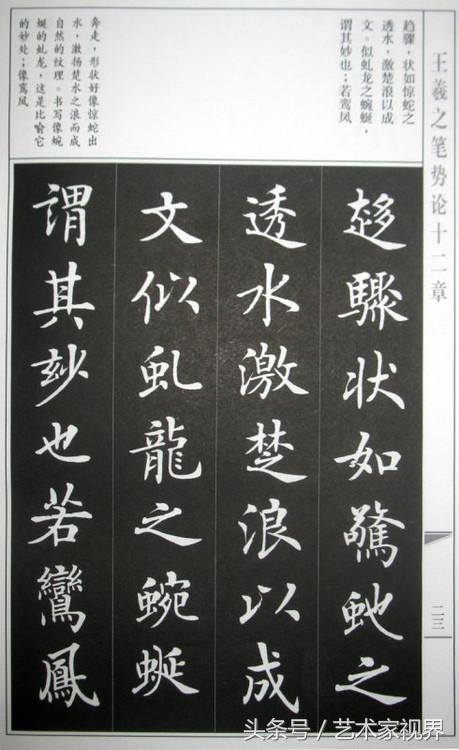 王羲之笔势论十二章
二三
趋骤，状如惊蛇之
透水，激楚浪以成
文。似虬龙之蜿蜒，
谓其妙也；若鸾凤
奔走，形状好像惊蛇出
水，激扬楚水之浪而成
自然的纹理。书写像蜿
蜒的虬龙，这是比喻它
的妙处；像鸾凤
趍驟状如驚虵之
透水激楚浪以成
文似虬龍之蜿蜒
謂其玅也若鸞鳳
头条号／艺术家视界